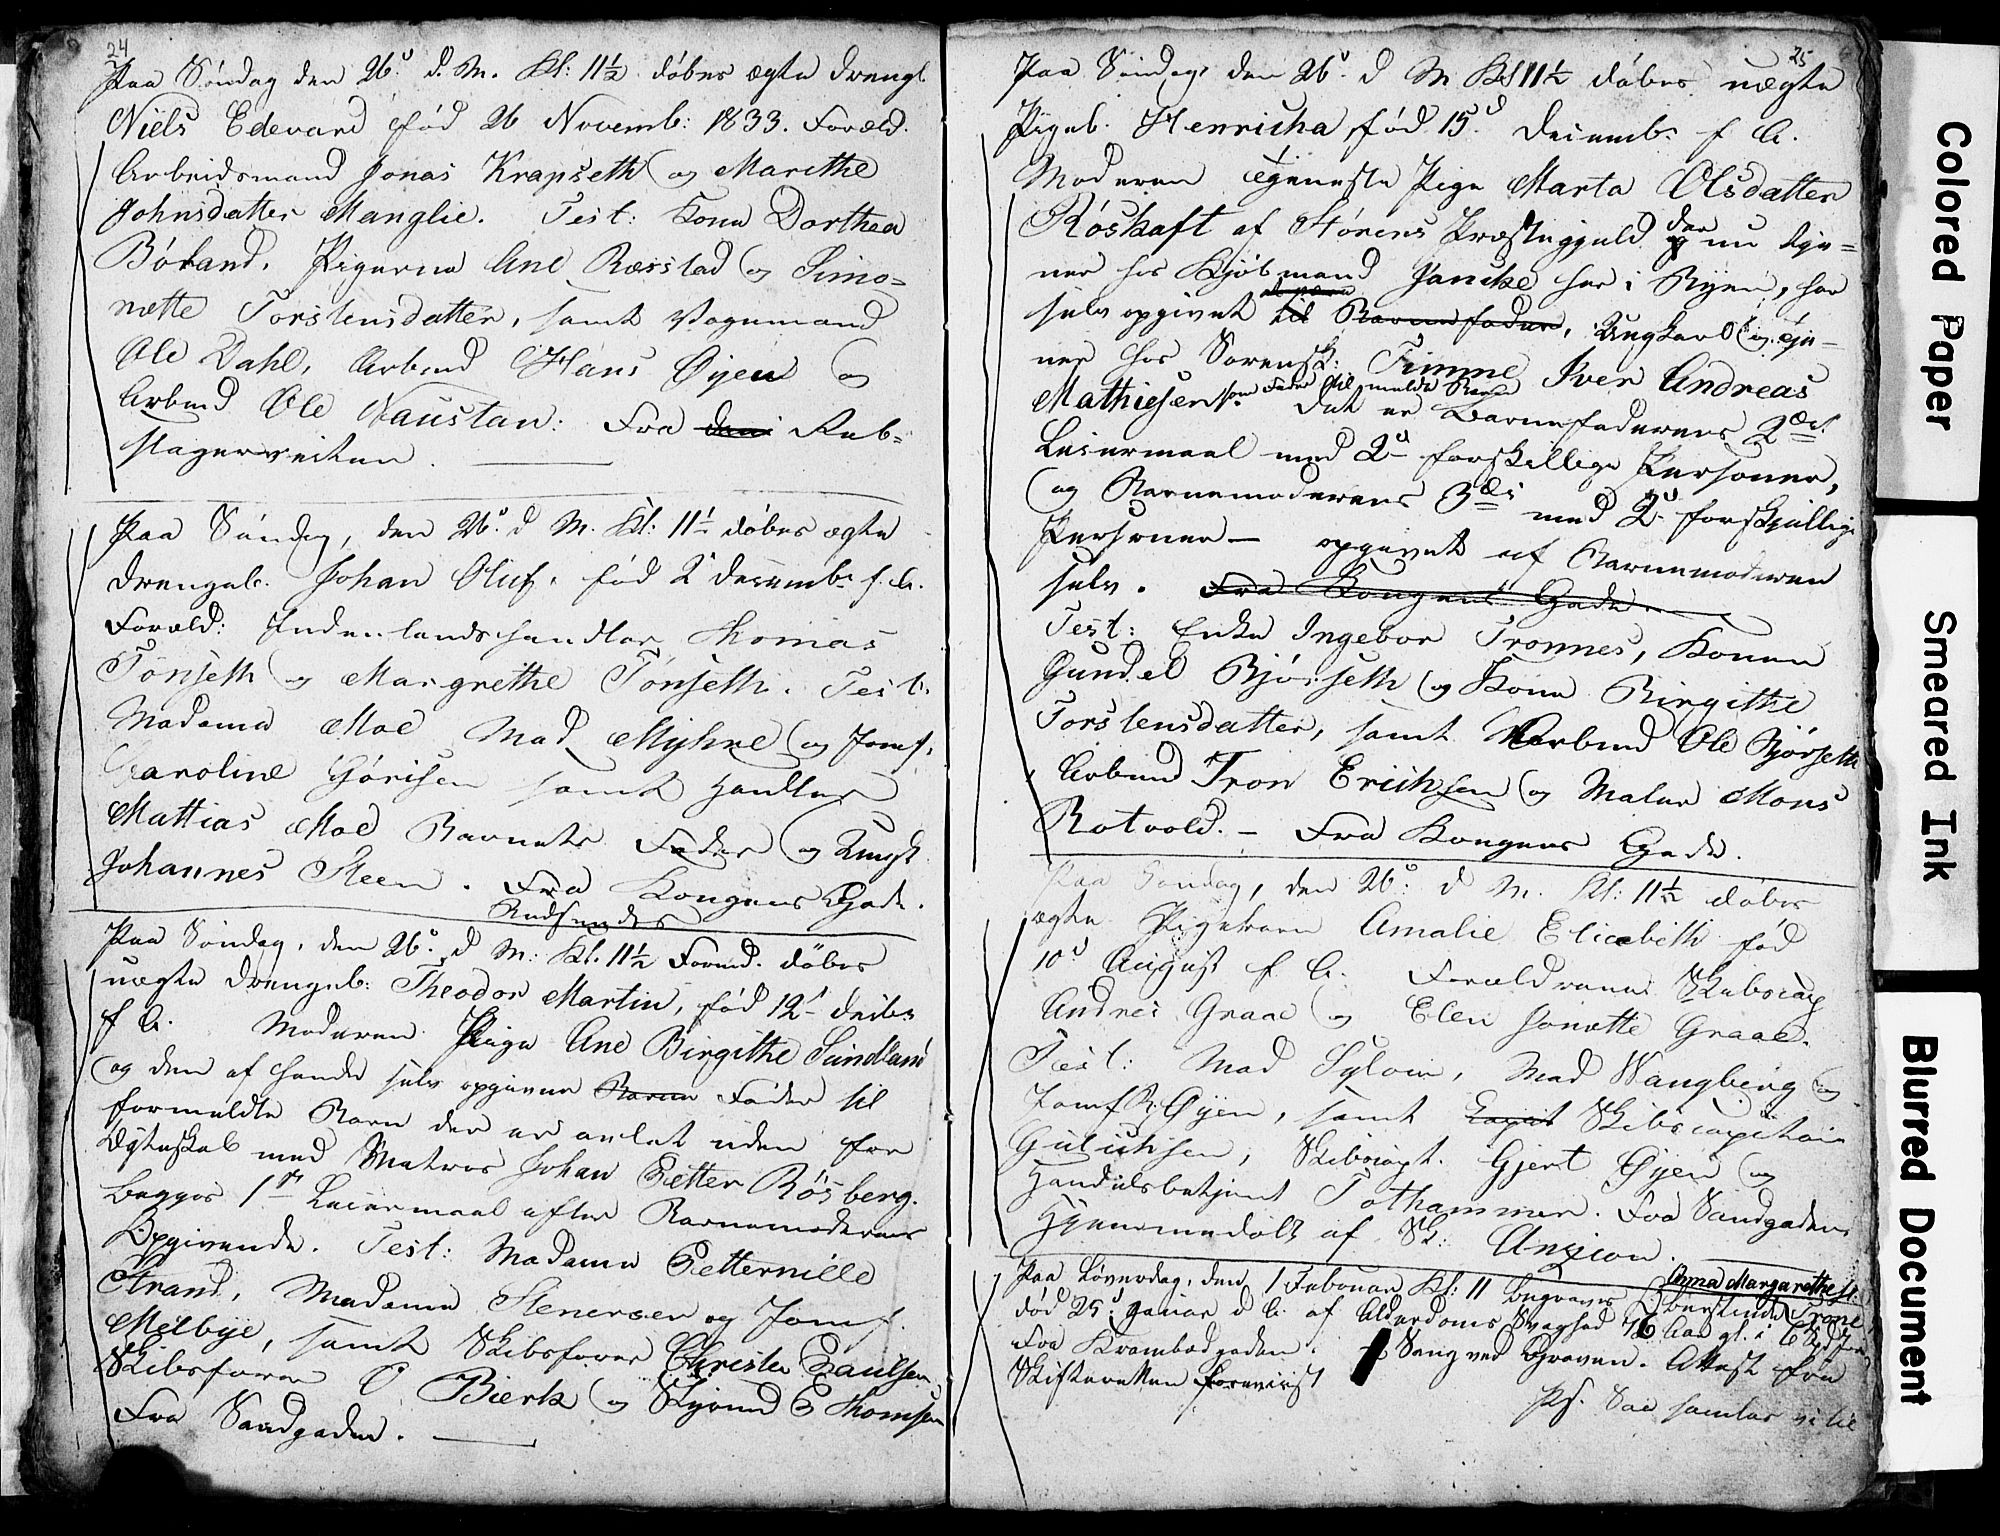 24
Paa Søndag den 26d. d. M. Kl: 11½ døbes ægte Drengb.
Niels Edevard fød 26 Novemb: 1833. Foræld.
Arbeidsmand Jonas Krapseth og Marithe
Johnsdatter Manglie. Test: Kone Dorthea
Børand, Pigerne Ane Ræsstad og Simo=
nætte Torstensdatter, samt Vognmand
Ole Dahl, Arbmd Hans Øyen og
Arbmd Ole Naustan: Fra Reb=
slagerveiten.
Paa Søndag, den 26d. d M. Kl: 11½ døbes ægte
Drengeb. Johan Oluf, fød 2d Desemb. f. A.
Foræld: Indenlandshandler Thomas
Tønseth og Margrethe Tønseth. Test:
Madame Moe Mad Myhre og Jomf.
Caroline Gørisen samt Handler
Mattias Moe Barnets Fader og Ungk
Johannes Steen. Fra Kongens Gade.
Paa Søndag, den 26d. d M: Kl. 11½ Formd. døbes
uægte Drengeb: Theodor Martin, fød 12d Decbr
f A. Moderen Pige Ane Birgithe Sundland
og den af hende selv opgivne Barne Fader til
formeldte Barn der er avlet uden for
Ægteskab med Matros Johan Petter Røsberg.
Begges 1ste Leiermaal efter Barnemoderens
Opgivende. Test: Madame Petternille
Strand, Madame Stenersen og Jomf.
Melbye, samt Skibsfører Christen Paulsen
Skibsfører O Bierk og Styrmd E Thomsen
Fra Sandgaden.
25
Paa Søndag den 26d. d M Kl 11½ døbes uægte
Pigeb. Henricha, fød 15d Decemb. f A.
Moderen Tjeneste Pige Marta Olsdatter
Røskaft af Størens Præstegjeld der nu tje=
ner hos Kjøbmand Jancke her i Byen, har
selv opgivet til Barnefader, Ungkarl og tje-
ner hos Sorensk: Timme Iver Andreas
Mathiesen som Fader til meldte Barn
Det er Barnefaderens 2det
Leiermaal med 2d forskillige Personer,
og Barnemoderens 3die med 2d forskjellige
Personer — opgivet af Barnemoderen
selv. Fra Kongens Gade.
Test: Enke Ingebor Tronnes, Konen
Gundel Bjørseth og Kone Birgithe
Torstensdatter, samt Arbmd Ole Bjørseth
Arbmd Tron Erichsen og Maler Mons
Rotvold. — Fra Kongens Gade.
Paa Søndag, den 26d. d M. Kl: 11½ døbes
ægte Pigebarn Amalie Elisabeth fød
10d August f. A. Forældrene Skibscap
Andres Graae og Elen Jonætte Graae.
Test: Mad Sylvin, Mad Wangberg og
Jomf B. Øyen, samt Skibscapitain
Gulichsen, Skibscapt. Gjert Øyen og
Handelsbetjent Tothammer. Fra Sandgaden
Hjemmedøbt af Sk: Angion.
Paa Løverdag, den 1 Februar Kl: 11 begraves Anna Margarethe
død 25d Januar d A. af Alderdoms Svaghed 76 Aar gl.
Fra Krambodgaden. Sang ved Graven. Attest fra
Skifteretten foreviist